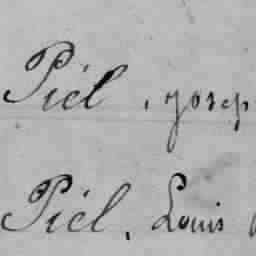 Piel, Josep
Piel, Louis